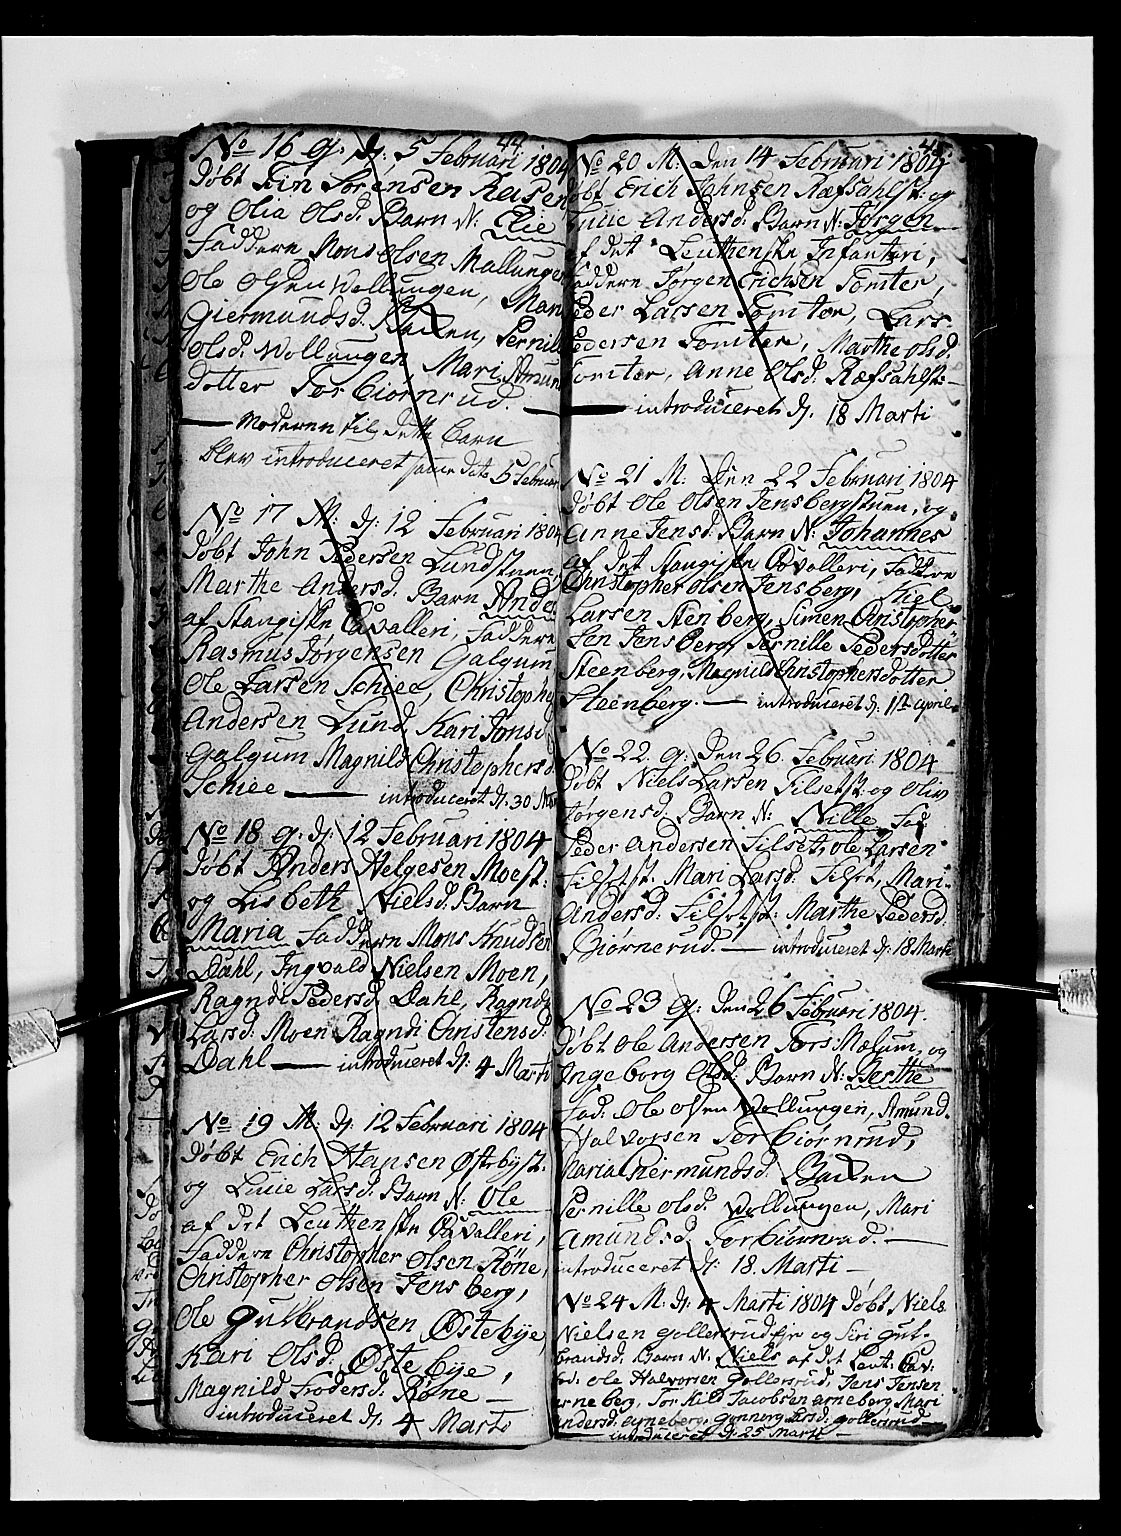 44
No 16 q. d. 5 Februari 1804
døbt Fin Sørensen Rasen
og Olia Olsd. Barn N: Elie
Faddere Mons Olsen Mallungen
Ole Olsen Wollungen, Mari
Giermundsd. Bakken, Pernille
Olsd. Wollungen, Mari Amun
dotter Torbiørnrud.
— Moderen til dette Barn
blev introduceret samme dato 5 Februari
No 17 M. d. 12 Februari 1804
døbt John Pedersen Lundstuen,
Marthe Andersd. Barn Ande
af Stangiske Cavalleri, Faddere
Rasmus Jørgensen Galgum
Ole Larsen Schiee, Christopher
Andersen Lund, Kari Jonsd.
Galgum Magnild Christophersd.
Schiee — introduceret d. 30 Mar
No 18 q. d. 12 Februari 1804
døbt Anders Helgesen Moest:
og Lisbeth Nielsd. Barn
Maria Faddere Mons Knudsen
Dahl, Ingvald Nielsen Moen,
Ragndi Pedersd. Dahl, Ragndi
Larsd: Moen Ragndi Christensd.
Dahl — introduceret d. 4 Marti
No 19 M. d. 12 Februari 1804
døbt Erich Hansen Østbyst.
og Lucie Larsd. Barn N: Ole
af det Leuthenske Cavalleri,
Faddere Christopher Olsen Røne,
Christopher Olsen Jensberg,
Ole Gulbrandsen Østebye,
Kari Olsd: Østebye,
Magnild Frodersd. Røne —
introduceret d. 4 Marti
45
No 20 M. Den 14 Februari 1804
døbt Erich Johnsen Ræfsahlst. og
Lucie Andersd. Barn N: Jørgen
af det Leuthenske Infanteri,
Faddere Jørgen Erichsen Tomter,
Peder Larsen Tomter, Lars
Pedersen Tomter, Marthe Olsd.
Tomter, Anne Olsd. Ræfsahlst. —
— introduceret d. 18 Marti
No 21 M. Den 22 Februari 1804
døbt Ole Olsen Jensbergstuen, og
Anne Jensd. Barn N: Johannes
af det Stangiske Cavalleri, Faddere
Christopher Olsen Jensberg, Kiel
Larsen Stenberg, Simen Christopher
sen Jensberg, Pernille Pedersdotter
Steenberg, Magnild Christophersdotter
Steenberg. — introduceret d. 1st April
No 22 q. Den 26 Februari 1804
døbt Niels Larsen Tilsetst. og Oliv
Jørgensd. Barn N: Nille Fad
Peder Andersen Tilset, Ole Larsen
Tilsetst. Mari Larsd. Tilset, Mari
Andersd: Tilsetst. Marthe Pedersd.
Biørnerud. — introduceret d. 18 Marti
No 23 q. Den 26 Februari 1804.
døbt Ole Andersen Fors Mælum, og
Ingeborg Olsd: Barn N: Berthe
Fad: Ole Olsen Wollungen, Amund
Halvorsen Torbiørnrud,
Maria Giermundsd. Bakken
Pernille Olsd. Wollungen, Mari
Amundsd. Torbiørnrud. —
introduceret d. 18. Marti —
No 24 M. d. 4 Marti 1804 døbt Niels
Nielsen Gollerud eje og Siri Gul-
brandsd. Barn N. Niels af det Leut. Cav.
Fad. Ole Halvorsen Gollerud, Jens Jensen
Arneberg, Torkild Jacobsen Arneberg, Mari
Andersd. Arneberg, Gunnorg Larsd. Gollerud
introduceret d. 25 Marti —